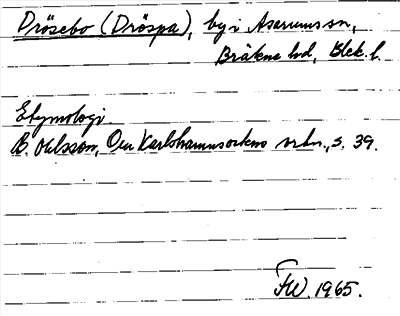 Drösebo (Dröspa), by i Asarums sn,
Bräkne hd, Blek. l.
Etymologi.
B. Ohlsson, Om Karlshamnsortens ordn., s. 39.
FW. 1965.